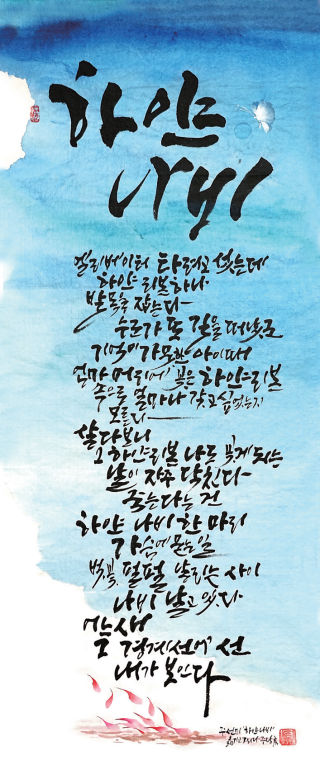 하얀
나비
엘리베이터 타려고 섰는데
하얀 리본 하나
발목을 잡는다
누군가 또 길을 떠났고
기억이 가물한 아이 때
엄마 머리에 꽂은 하얀 리본
속으로 얼마나 갖고 싶었는지
모른다
살다보니
그 하얀 리본 나도 꽂게 되는
날이 자주 닥친다
꽂는다는 건
하얀 나비 한 마리
가슴에 묻는 일
벚꽃 펄펄 날리는 사이
나비 날고 있다
어느새
또 경계선에 선
내가 보인다
하얀나비